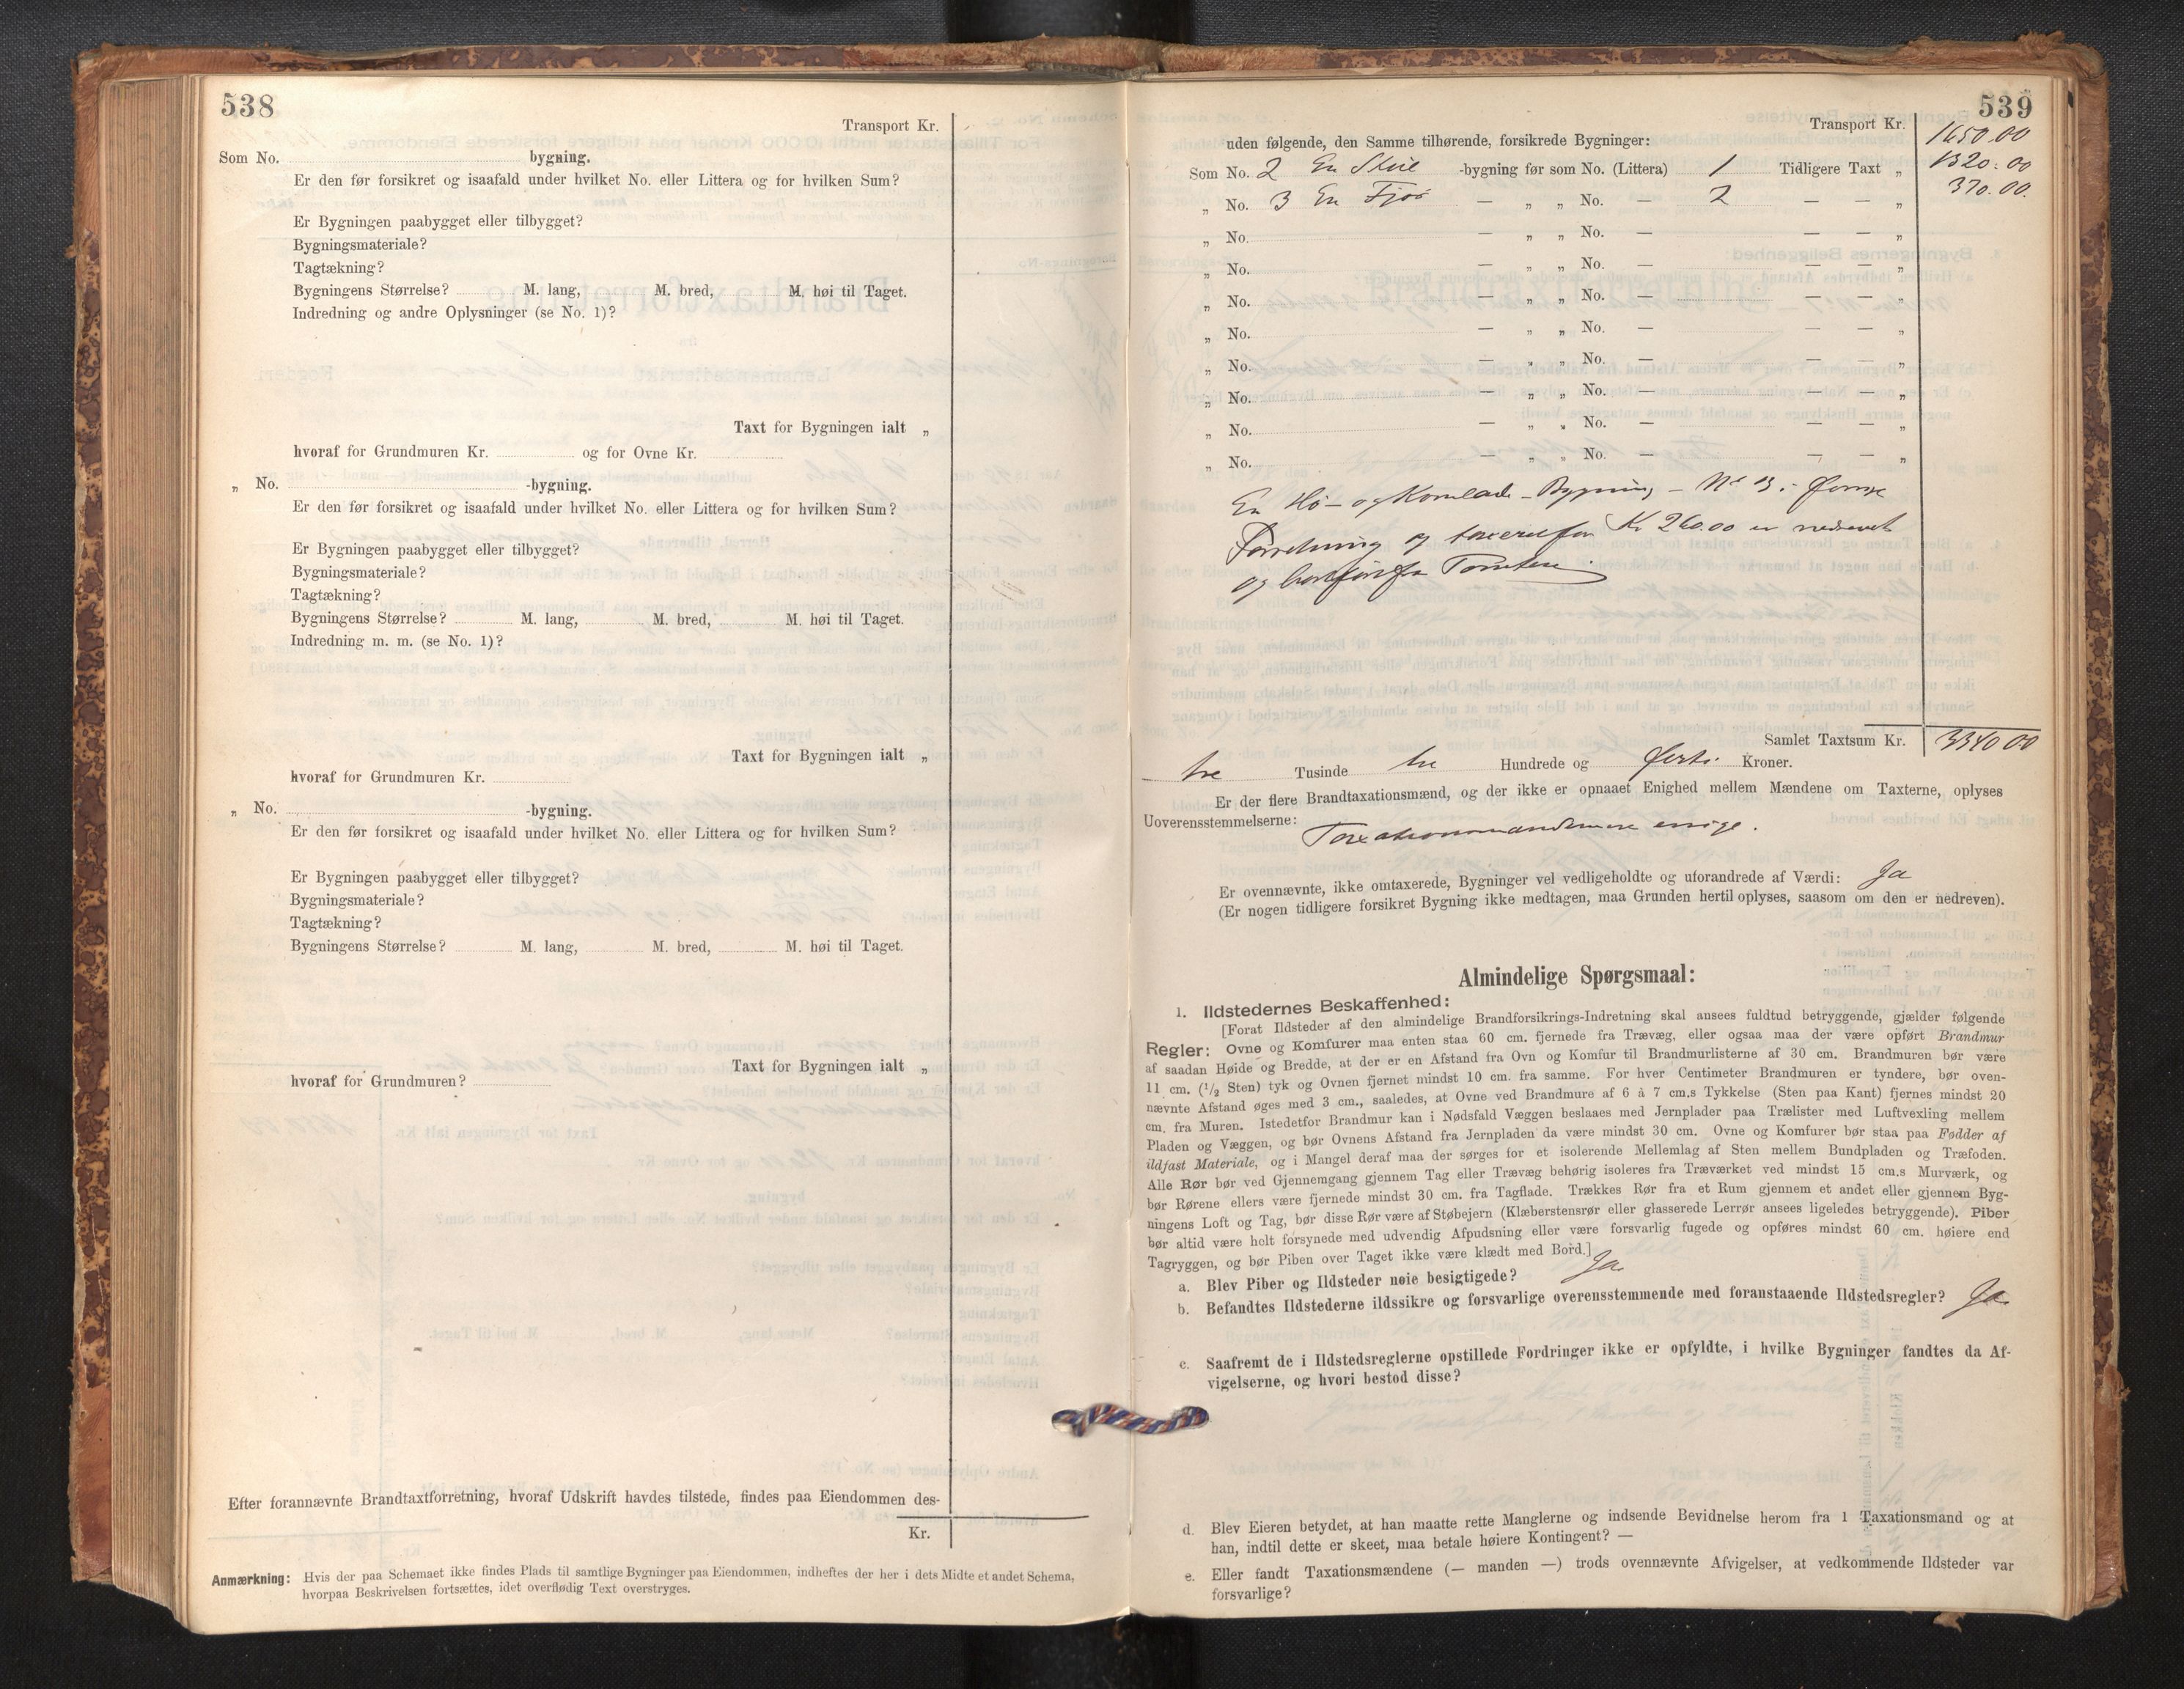 538
Transport Kr.
Som No. bygning.
Er den før forsikret og isaafald under hvilket No. eller Littera og for hvilken Sum?
Er Bygningen paabygget eller tilbygget?
Bygningsmateriale?
Tagtækning?
Bygningens Størrelse? M. lang, M. bred, M. høi til Taget.
Indredning og andre Oplysninger (se No. 1)?
Taxt for Bygningen ialt „
hvoraf for Grundmuren Kr. og for Ovne Kr.
„ No. -bygning.
Er den før forsikret og isaafald under hvilket No. eller Littera og for hvilken Sum?
Er Bygningen paabygget eller tilbygget?
Bygningsmateriale?
Tagtækning?
Bygningens Størrelse? M. lang, M. bred, M. høi til Taget.
Indredning m. m. (se No. 1)?
Taxt for Bygningen ialt „
hvoraf for Grundmuren Kr.
„ No. -bygning.
Er den før forsikret og isaafald under hvilket No. eller Littera og for hvilken Sum?
Er Bygningen paabygget eller tilbygget?
Bygningsmateriale?
Tagtækning?
Bygningens Størrelse? M. lang, M. bred, M. høi til Taget.
Taxt for Bygningen ialt „
hvoraf for Grundmuren?
Efter forannævnte Brandtaxtforretning, hvoraf Udskrift havdes tilstede, findes paa Eiendommen des-
Kr.
Anmærkning: Hvis der paa Schemaet ikke findes Plads til samtlige Bygninger paa Eiendommen, indheftes der her i dets Midte et andet Schema,
hvorpaa Beskrivelsen fortsættes, idet overflødig Text overstryges.
539
Transport Kr. 1650.00
uden følgende, den Samme tilhørende, forsikrede Bygninger:
Som No. 2 En -bygning før som No. (Littera) 1 Tidligere Taxt „ 1320.00
„ No. 3 En Fjøs — „ „ No. — 2 — — „ 370.00.
„ No. — „ „ No. — — — „
„ No. — „ „ No. — — — „
„ No. — „ „ No. — — — „
„ No. — „ „ No. — — — „
„ No. — „ „ No. — — — „
„ No. — „ „ No. — — — „
„ No. — „ „ No. — — — „
„ No. — „ „ No. — — — „
En Hø- og Kornlade-Bygning - No 3 i
Forretning og taxeret for Kr 260.00 er nedrevet
og bortført fra Tomten.
Samlet Taxtsum Kr. 3340.00
tre Tusinde tre Hundrede og førti. Kroner.
Er der flere Brandtaxationsmænd, og der ikke er opnaaet Enighed mellem Mændene om Taxterne, oplyses
Uoverensstemmelserne: Taxationsmændene enige.
Er ovennævnte, ikke omtaxerede, Bygninger vel vedligeholdte og uforandrede af Værdi: Ja
(Er nogen tidligere forsikret Bygning ikke medtagen, maa Grunden hertil oplyses, saasom om den er nedreven).
Almindelige Spørgsmaal:
1. Ildstedernes Beskaffenhed:
[Forat Ildsteder af den almindelige Brandforsikrings-Indretning skal ansees fuldtud betryggende, gjælder følgende
Regler: Ovne og Komfurer maa enten staa 60 cm. fjernede fra Trævæg, eller ogsaa maa der være opført Brandmur
af saadan Høide og Bredde, at der er en Afstand fra Ovn og Komfur til Brandmurlisterne af 30 cm. Brandmuren bør være
11 cm. (1/2 Sten) tyk og Ovnen fjernet mindst 10 cm. fra samme. For hver Centimeter Brandmuren er tyndere, bør oven-
nævnte Afstand øges med 3 cm., saaledes, at Ovne ved Brandmure af 6 à 7 cm.s Tykkelse (Sten paa Kant) fjernes mindst 20
cm. fra Muren. Istedetfor Brandmur kan i Nødsfald Væggen beslaaes med Jernplader paa Trælister med Luftvexling mellem
Pladen og Væggen, og bør Ovnens Afstand fra Jernpladen da være mindst 30 cm. Ovne og Komfurer bør staa paa Fødder af
ildfast Materiale, og i Mangel deraf maa der sørges for et isolerende Mellemlag af Sten mellem Bundpladen og Træfoden.
Alle Rør bør ved Gjennemgang gjennem Tag eller Trævæg behørig isoleres fra Træværket ved mindst 15 cm.s Murværk, og
bør Rørene ellers være fjernede mindst 30 cm. fra Tagflade. Trækkes Rør fra et Rum gjennem et andet eller gjennem Byg-
ningens Loft og Tag, bør disse Rør være af Støbejern (Klæberstensrør eller glasserede Lerrør ansees ligeledes betryggende). Piber
bør altid være helt forsynede med udvendig Afpudsning eller være forsvarlig fugede og opføres mindst 60 cm. høiere end
Tagryggen, og bør Piben over Taget ikke være klædt med Bord.]
a. Blev Piber og Ildsteder nøie besigtigede? Ja.
b. Befandtes Ildstederne ildssikre og forsvarlige overensstemmende med foranstaaende Ildstedsregler? Ja.
c. Saafremt de i Ildstedsreglerne opstillede Fordringer ikke er opfyldte, i hvilke Bygninger fandtes da Af-
vigelserne, og hvori bestod disse?
d. Blev Eieren betydet, at han maatte rette Manglerne og indsende Bevidnelse herom fra 1 Taxationsmand og at
han, indtil dette er skeet, maa betale høiere Kontingent? —
e. Eller fandt Taxationsmændene (— manden —) trods ovennævnte Afvigelser, at vedkommende Ildsteder var
forsvarlige?